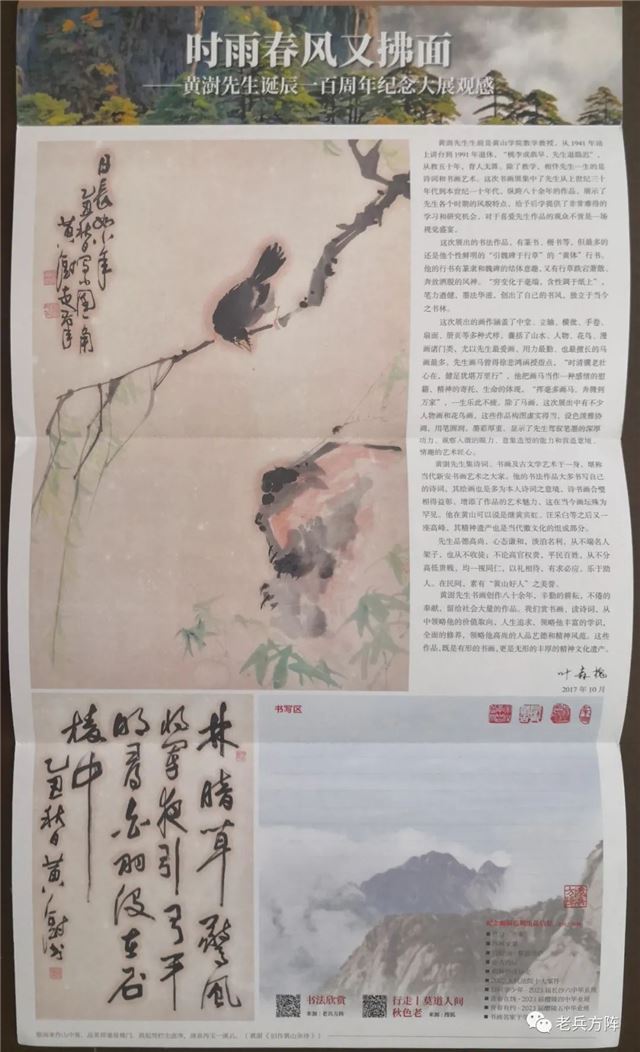 时雨春风又拂面
——黄澍先生诞辰一百周年纪念大展观感
日长如小年
乙丑秋日写小园角
黄澍
黄澍先生生前是黄山学院数学教授。从1941年站
上讲台到1991年退休，“桃李成荫早，先生退隐迟”，
从教五十年，育人无算。除了教学，相伴先生一生的是
诗词和书画艺术。这次书画展集中了先生从上世纪三十
年代到本世纪一十年代，纵跨八十余年的作品。展示了
先生各个时期的风貌特点，给予后学提供了非常难得的
学习和研究机会，对于喜爱先生作品的观众不啻是一场
视觉盛宴。
这次展出的书法作品，有篆书、楷书等，但最多的
还是他个性鲜明的“引魏碑于行草”的“黄体”行书。
他的行书有篆隶和魏碑的结体意趣，又有行草跌宕萧散、
奔放洒脱的风神。“穷变化于毫端，含性调于纸上”，
笔力遒健，墨法华滋，创出了自己的书风，独立于当今
之书林。
这次展出的画作涵盖了中堂、立轴、横批、手卷、
扇面、册页等多种式样，囊括了山水、人物、花鸟、漫
画诸门类，尤以先生最爱画、用力最勤、也最擅长的马
画最多，先生画马曾得徐悲鸿函授指点，“时清骥老壮
心在，健足犹堪万里行”，他把画马当作一种感情的慰
藉，精神的寄托，生命的体现。“挥毫多画马，奔腾到
万家”，一生乐此不疲。除了马画，这次展出中有不少
人物画和花鸟画，这些作品构图虚实得当，设色淡雅协
调，用笔圆润，墨韵厚重，显示了先生驾驭笔墨的深厚
功力、观察入微的眼力、意象造型的能力和营造意境、
情趣的艺术匠心。
黄澍先生集诗词、书画及古文学艺术于一身，堪称
当代新安书画艺术之大家。他的书法作品大多书写自己
的诗词，其绘画也是多为本人诗词之意境，诗书画合璧
相得益彰，增添了作品的艺术魅力，这在当今画坛殊为
罕见。他在黄山可以说是继黄宾虹、汪采白等之后又一
座高峰。其精神遗产也是当代徽文化的组成部分。
先生品德高尚，心态谦和，淡泊名利，从不端名人
架子，也从不收徒；不论高官权贵，平民百姓，从不分
高低贵贱，均一视同仁，以礼相待，有求必应，乐于助
人。在民间，素有“黄山好人”之美誉。
黄澍先生书画创作八十余年，辛勤的耕耘，不倦的
奉献，留给社会大量的作品。我们赏书画、读诗词，从
中领略他的价值取向、人生追求，领略他丰富的学识，
全面的修养，领略他高尚的人品艺德和精神风范。这些
作品，既是有形的书画，更是无形的丰厚的精神文化遗产。
叶森槐
2017年10月
林暗草惊风
将军夜引弓平
明寻白羽没在石
棱中
乙丑秋日黄澍书
书写区
书法欣赏
来源：老兵方阵
行走｜莫道人间
秋色老
来源：搜狐
老兵方阵